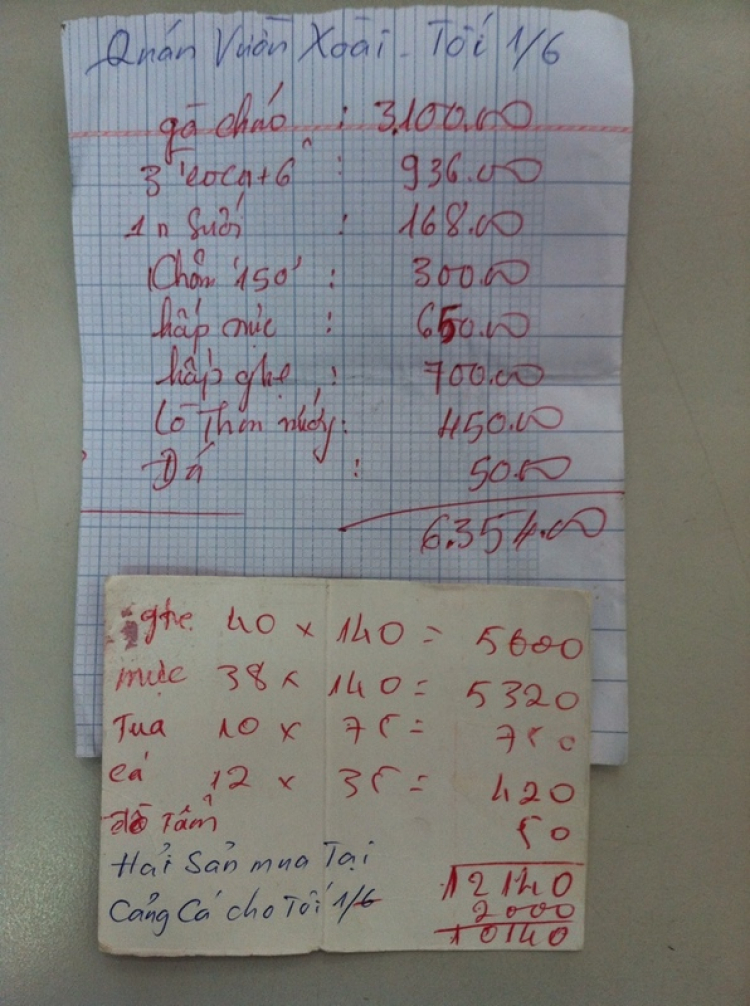 Quán Vườn Xoài - Tối 1/6
gà cháo : 3.100.00
3 coca+6 : 936.00
1 n suối : 168.00
Chôm '150' : 300.00
hấp mực : 650.00
hấp ghẹ : 700.00
Lò Than nướng : 450.00
Đá : 50.00
6.354.00
ghẹ 40 x 140 = 5600
mực 38 x 140 = 5320
Tua 10 x 75 = 750
cá 12 x 35 = 420
đồ Tẩm 50
12140
Hải Sản mua Tại
2000
Cảng Cá cho Tối 1/6
10140